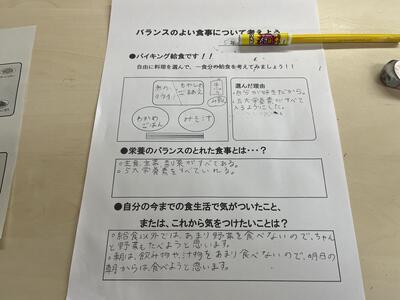 バランスのよい食事について考えよう
●バイキング給食です！！
自由に料理を選んで、一食分の給食を考えてみましょう！！
もやしの
ごまあえ
わかめ
ごはん
みそ汁
選んだ理由
・自分が好きだから。
・五大栄養素がすべて
入るようにした。
●栄養のバランスのとれた食事とは･･･？
○主食、主菜、副菜がすべてある。
○5大栄養素をすべていれる。
●自分の今までの食生活で気がついたこと、
または、これから気をつけたいことは？
○給食以外では、あまり野菜を食べないので、ちゃん
と野菜もたべようと思います。
○朝は、飲み物や、汁物をあまり食べないので、明日の
朝からは、食べようと思います。